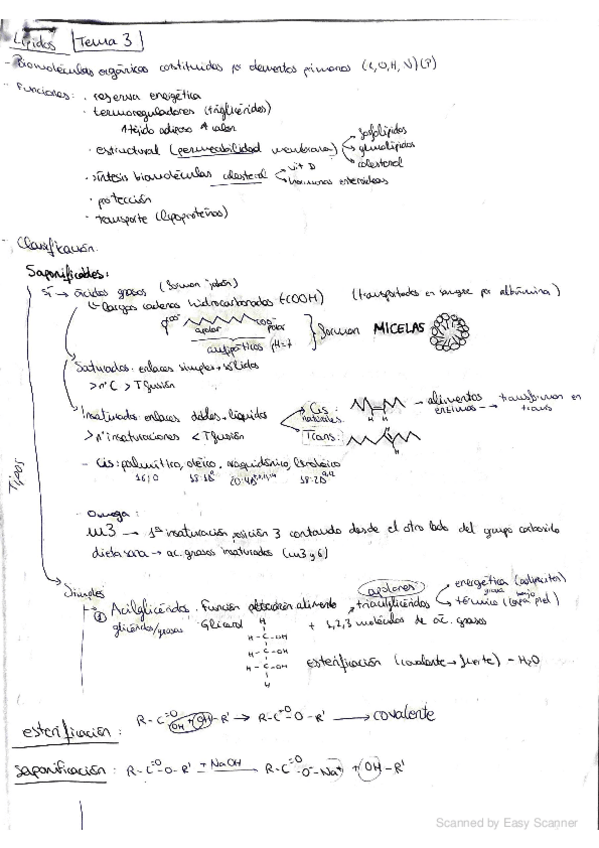 Lípidos Tema 3
- Biomoléculas orgánicas constituidas por elementos primarios (C,O,H,N)(P)
- Funciones: · reserva energética
· termoreguladores (triglicéridos)
↑ tejido adiposo ↑ calor
· estructural (permeabilidad membrana) fosfolípidos
glucolípidos
colesterol
· síntesis biomoléculas colesterol vit D
hormonas esteroideas
· protección
· transporte (lipoproteínas)
- Clasificación.
Saponificables:
sí → ácidos grasos (forman jabón)
↳ Largas cadenas hidrocarbonadas (-COOH) (transportados en sangre por albúmina)
apolar COO⁻ polar
anfipáticos pH=7
forman MICELAS
Saturados: enlaces simples → sólidos
> nºC > T fusión
Insaturados: enlaces dobles → líquidos
> nº insaturaciones < T fusión
Cis:
naturales
H H
→ alimentos
→ transforman en trans
Trans:
H
H
- Cis: palmítico, oleico, araquidónico, linoleico
16:0 18:1Δ9 20:4Δ5,8,11,14 18:2Δ9,12
Tipos
Omega:
ω3 → 1ª insaturación posición 3 contando desde el otro lado del grupo carboxilo
dieta sana → ac. grasos insaturados (ω3 y 6)
Simples
① Acilglicéridos. Función obtención alimento
glicéridos/grasas
apolares
triacilglicéridos
energética (adipocitos)
grasa bajo
térmico (capa piel)
Glicerol + 1,2,3 moléculas de ác. grasos
H
H-C-OH
H-C-OH
H-C-OH
H
esterificación (covalente → fuerte) - H₂O
esterificación: R-C=O OH + OH-R' → R-C=O-O-R' → covalente
saponificación: R-C=O-O-R' + NaOH → R-C=O O⁻Na⁺ + OH-R'
Scanned by Easy Scanner